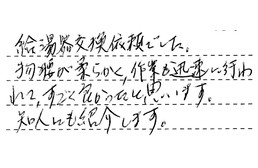 給湯器交換依頼でした。
物腰が柔らかく、作業も迅速に行わ
れて、すごく良かったと思います。
知人にも紹介します。